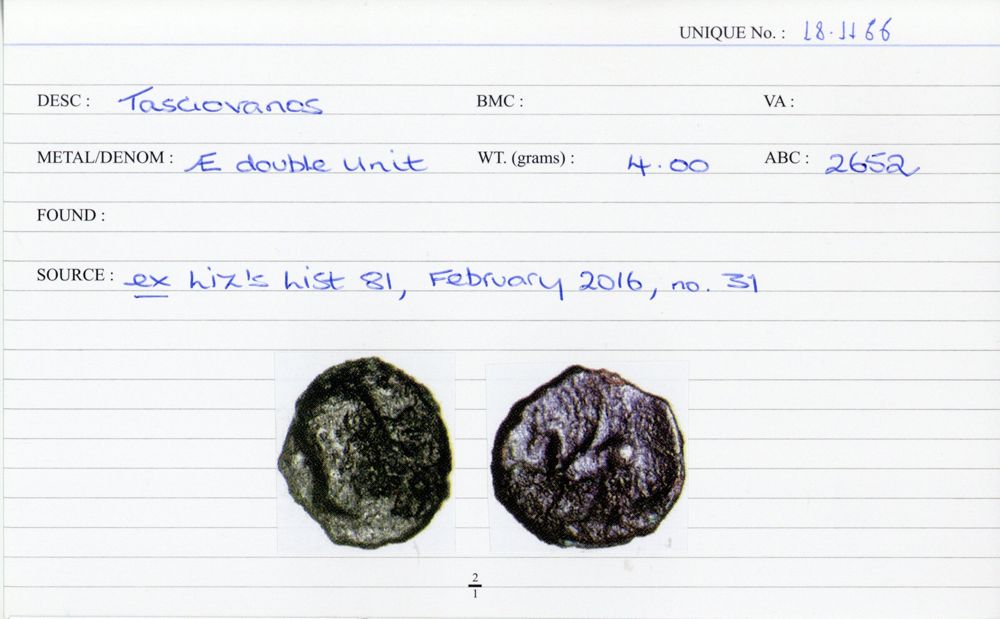 UNIQUE No. : 18.1166
DESC : Tasciovanos BMC : VA :
METAL/DENOM : Æ double unit WT. (grams) : 4.00 ABC : 2652
FOUND :
SOURCE : ex Liz's List 81, February 2016, no. 31
2
1